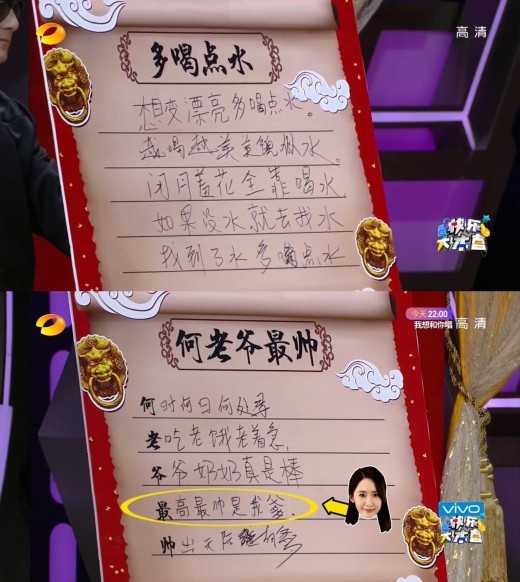 高清
多喝点水
想变漂亮多喝点水。
越喝越美美貌似水。
闭月羞花全靠喝水
如果没水就去找水
找到了水多喝点水
快乐大本营
今天 22:00
我想和你唱 高清
何老爷最帅
何时何日何处寻
老吃老饿老着急,
爷爷奶奶真是棒
最高最帅是我爹.
帅出天际
vivo
快乐大本营